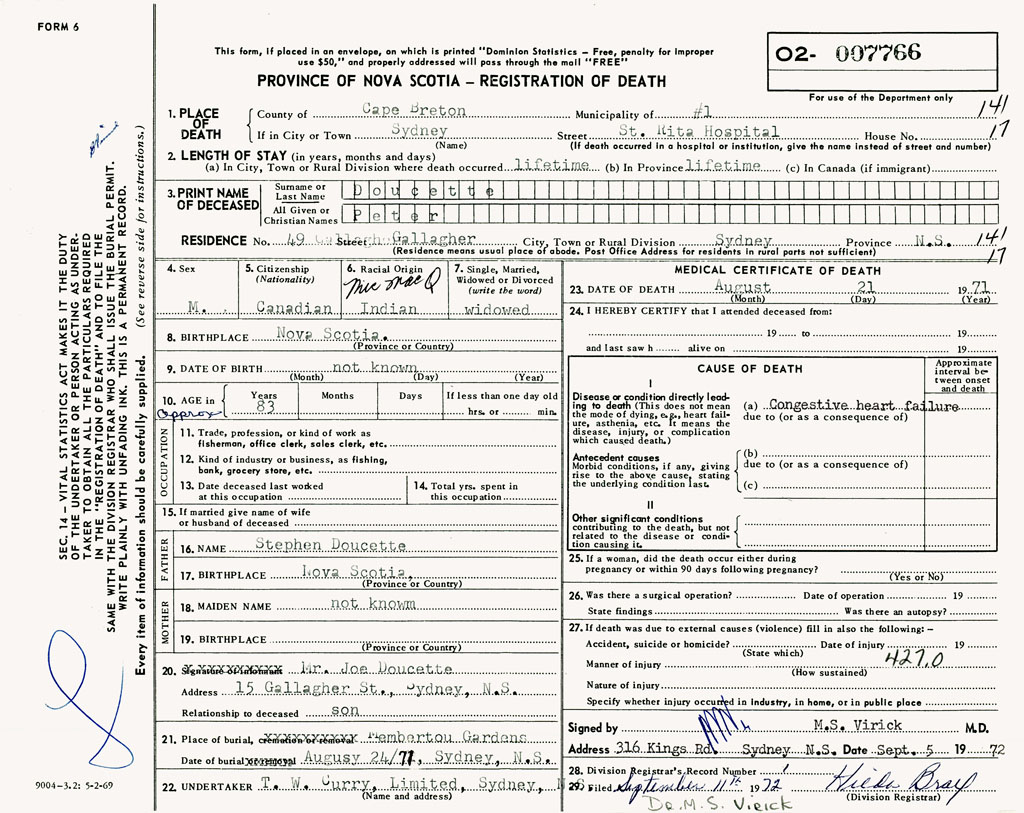 FORM 6
This form, if placed in an envelope, on which is printed "Dominion Statistics – Free, penalty for improper
use $50," and properly addressed will pass through the mail "FREE"
PROVINCE OF NOVA SCOTIA – REGISTRATION OF DEATH
02- 007766
For use of the Department only
1. PLACE OF DEATH
County of Cape Breton Municipality of #1 141
If in City or Town Sydney Street St. Rita Hospital House No. 17
(Name) (If death occurred in a hospital or institution, give the name instead of street and number)
2. LENGTH OF STAY (in years, months and days)
(a) In City, Town or Rural Division where death occurred lifetime (b) In Province lifetime (c) In Canada (if immigrant)
3. PRINT NAME OF DECEASED
Surname or Last Name Doucette
All Given or Christian Names Peter
RESIDENCE No. 49 Street Gallagher City, Town or Rural Division Sydney Province N.S. 141
(Residence means usual place of abode. Post Office Address for residents in rural parts not sufficient) 17
4. Sex
M.
5. Citizenship
(Nationality)
Canadian
6. Racial Origin
Mic Mac
Indian
7. Single, Married,
Widowed or Divorced
(write the word)
widowed
8. BIRTHPLACE Nova Scotia.
(Province or Country)
9. DATE OF BIRTH not known
(Month) (Day) (Year)
10. AGE in Years Months Days If less than one day old
approx 83 hrs. or min.
OCCUPATION
11. Trade, profession, or kind of work as
fisherman, office clerk, sales clerk, etc.
12. Kind of industry or business, as fishing,
bank, grocery store, etc.
13. Date deceased last worked
at this occupation
14. Total yrs. spent in
this occupation
15. If married give name of wife
or husband of deceased
FATHER
16. NAME Stephen Doucette
17. BIRTHPLACE Nova Scotia,
(Province or Country)
MOTHER
18. MAIDEN NAME not known
19. BIRTHPLACE
(Province or Country)
20. Signature of Informant Mr. Joe Doucette
Address 15 Gallagher St., Sydney, N.S.
Relationship to deceased son
21. Place of burial, cremation or removal Membertou Gardens
Date of burial or removal Augusy 24/71, Sydney, N.S.
22. UNDERTAKER T. W. Curry, Limited, Sydney, N.S.
(Name and address)
MEDICAL CERTIFICATE OF DEATH
23. DATE OF DEATH August 21 1971
(Month) (Day) (Year)
24. I HEREBY CERTIFY that I attended deceased from:
19 to 19
and last saw h alive on 19
CAUSE OF DEATH
Approximate interval between onset and death
I
Disease or condition directly leading
to death (This does not mean
the mode of dying, e.g., heart failure,
asthenia, etc. It means the
disease, injury, or complication
which caused death.)
(a) Congestive heart failure
due to (or as a consequence of)
Antecedent causes
Morbid conditions, if any, giving
rise to the above cause, stating
the underlying condition last.
(b)
due to (or as a consequence of)
(c)
II
Other significant conditions
contributing to the death, but not
related to the disease or condition
causing it.
25. If a woman, did the death occur either during
pregnancy or within 90 days following pregnancy?
(Yes or No)
26. Was there a surgical operation? Date of operation 19
State findings Was there an autopsy?
27. If death was due to external causes (violence) fill in also the following: –
Accident, suicide or homicide? Date of injury 19
(State which) 427.0
Manner of injury
(How sustained)
Nature of injury
Specify whether injury occurred in industry, in home, or in public place
Signed by M.S. Virick M.D.
Address 316 Kings Rd. Sydney N.S. Date Sept. 5 1972
28. Division Registrar's Record Number
29. Filed September 11th 1972 Hilda Bray
(Division Registrar)
Dr. M.S. Virick
SEC. 14 – VITAL STATISTICS ACT MAKES IT THE DUTY
OF THE UNDERTAKER OR PERSON ACTING AS UNDERTAKER
TO OBTAIN ALL THE PARTICULARS REQUIRED
IN THE "REGISTRATION OF DEATH" AND TO FILE THE
SAME WITH THE DIVISION REGISTRAR WHO SHALL ISSUE THE BURIAL PERMIT.
WRITE PLAINLY WITH UNFADING INK. THIS IS A PERMANENT RECORD.
Every item of information should be carefully supplied. (See reverse side for instructions.)
9004-3.2: 5-2-69